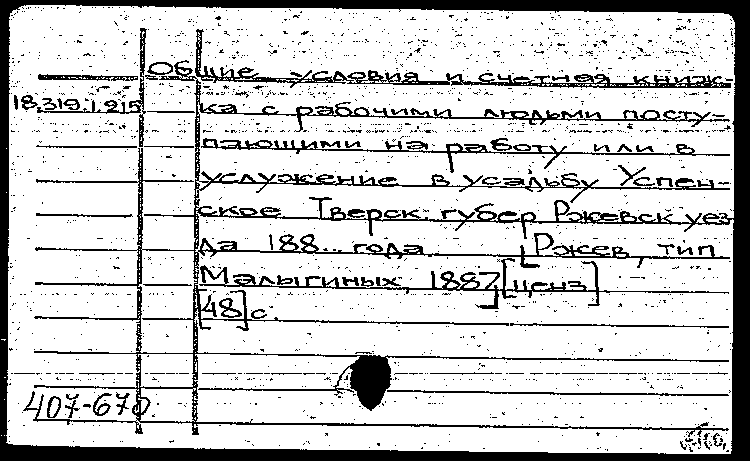 Общие условия и счетная книж-
18.319.1.215 ка с рабочими людьми посту-
пающими на работу или в
услужение в усадьбу Успен-
ское Тверск. губер Ржевск уез
да 188... года. [Ржев, тип.
Малыгиных, 1887] [ценз]
[48] с.
407-670